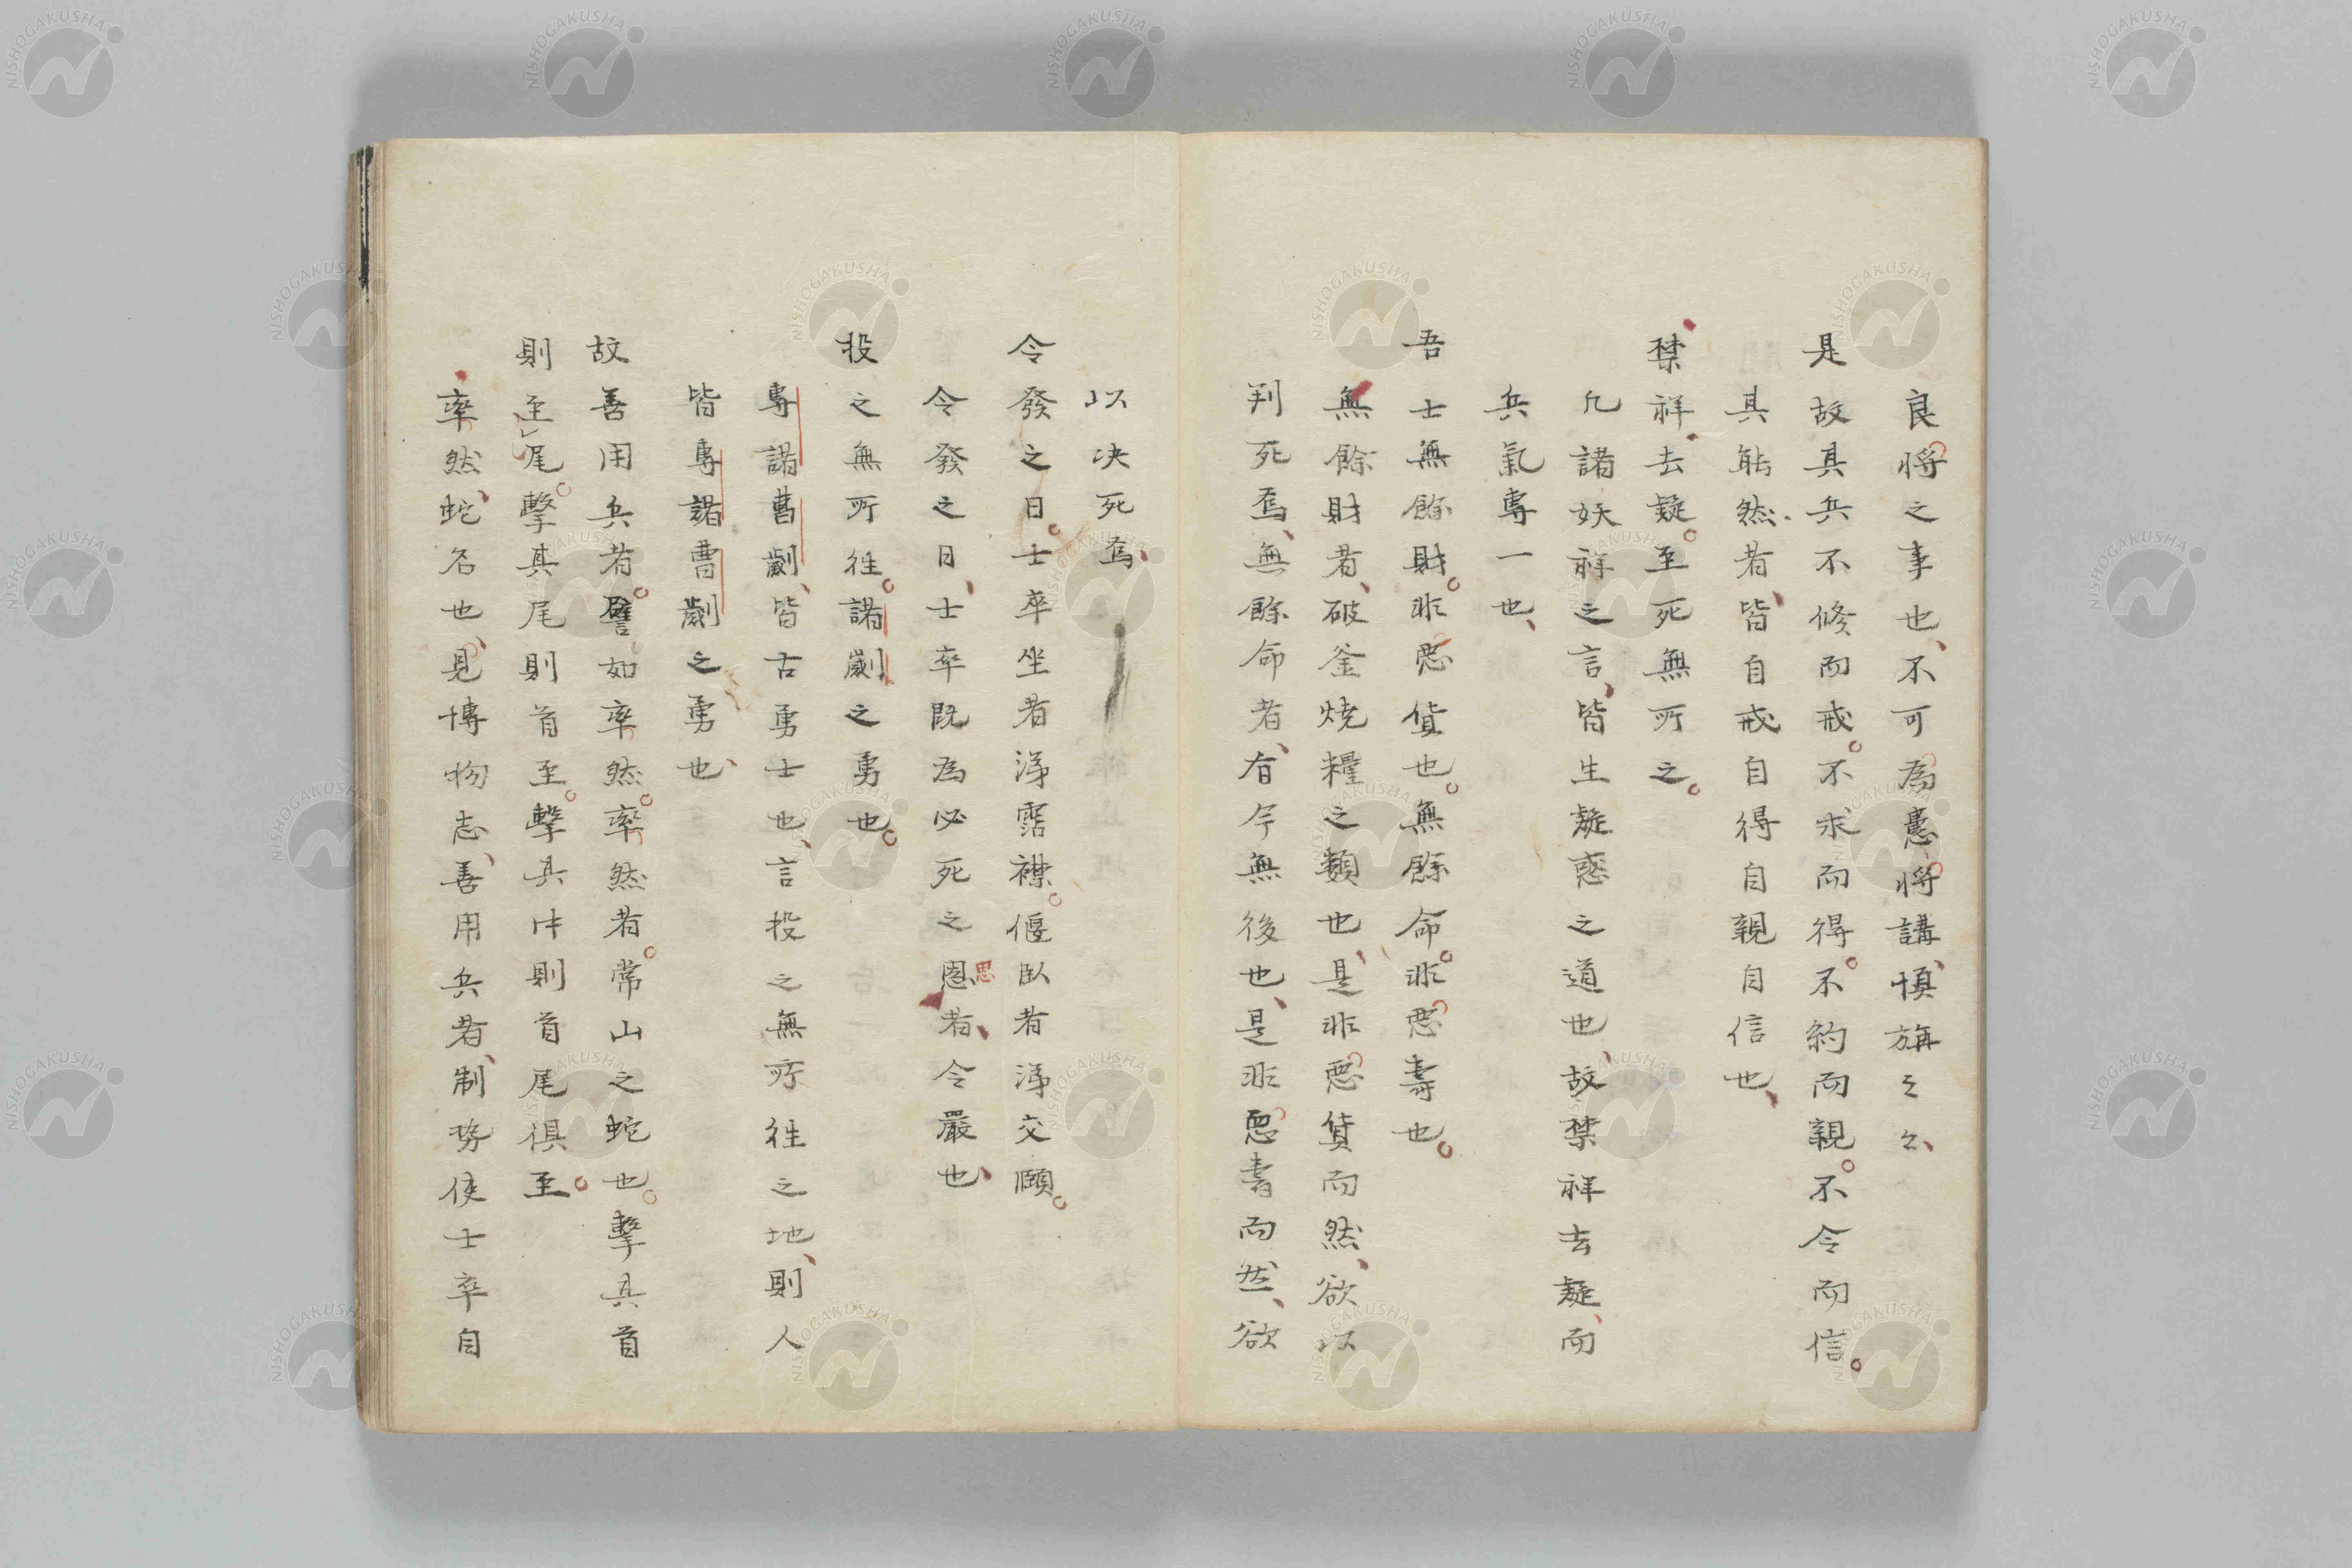 良将之事也不可為憃将講慎旃々々
是故其兵不修而戒不求而得不約而親不令而信
其能然者皆自戒自得自親自信也
禁祥去疑至死無所之
凡諸妖祥之言皆生疑惑之道也故禁祥去疑而
兵氣専一也
吾士無餘財非惡貨也無餘命非惡壽也
無餘財者破釜焼糧之類也是非惡貨而然欲以
判死焉無餘命者有今無後也是非惡壽而然欲
以决死焉
令發之日士卒坐者涕霑襟偃臥者涕交頤
令發之日士卒既為必死之恩者令嚴也
思
投之無所往諸劌之勇也
専諸曹劌皆古勇士也言投之無所往之地則人
皆専諸曹劌之勇也
故善用兵者譬如率然率然者常山之蛇也擊其首
則至尾擊其尾則首至擊其中則首尾俱至
率然蛇名也見博物志善用兵者制勢使士卒自
NISHOGAKUSHA